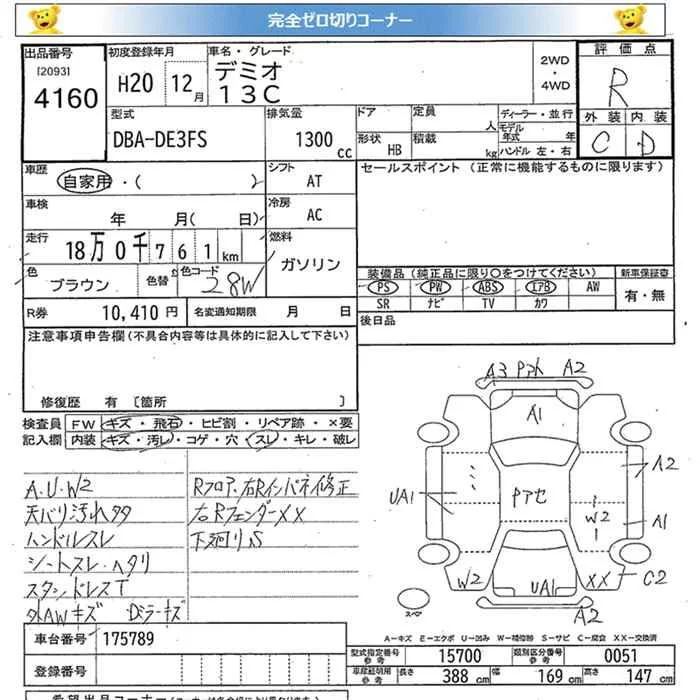 完全ゼロ切りコーナー
出品番号
[2093]
4160
初度登録年月
H20 12月
車名・グレード
デミオ
13C
2WD
・
4WD
評価点
R
外装 内装
C D
型式
DBA-DE3FS
排気量
1300 cc
ドア
形状 HB
定員
人
積載
kg
ディーラー・並行
モデル年式 年
ハンドル 左・右
車歴
自家用・( )
シフト
AT
セールスポイント (正常に機能するものに限ります)
車検
年 月( 日)
冷房
AC
走行
18万0千761km
燃料
ガソリン
色
ブラウン
色替
色コード
28W
装備品(純正品に限り○をつけてください)
PS PW ABS エアB AW
SR ナビ TV カワ
新車保証書
有・無
R券 10,410円
名変通知期限 月 日
後日品
注意事項申告欄(不具合内容等は具体的に記入して下さい)
修復歴 有 [箇所 ]
検査員記入欄
FW キズ・飛石・ヒビ割・リペア跡・×要
内装 キズ・汚レ・コゲ・穴・スレ・キレ・破レ
A.U.W2
天バリ汚れ多
ハンドルスレ
シートスレ・ヘタリ
スタンドレスT
外AWキズ Dミラーキズ
Rフロア.右Rインパネ修正
右RフェンダーXX
下廻りS
A3 Pアト A2
A1
A2
UA1
Pアセ
W2
A1
W2
UA1
XX
C2
A2
スペア
A-キズ E-エクボ U-凹み W-補修跡 S-サビ C-腐食 XX-交換済
車台番号 175789
登録番号
型式指定番号 参考 15700 類別区分番号 参考 0051
車産総明細 参考 長さ 388 cm 幅 169 cm 高さ 147 cm